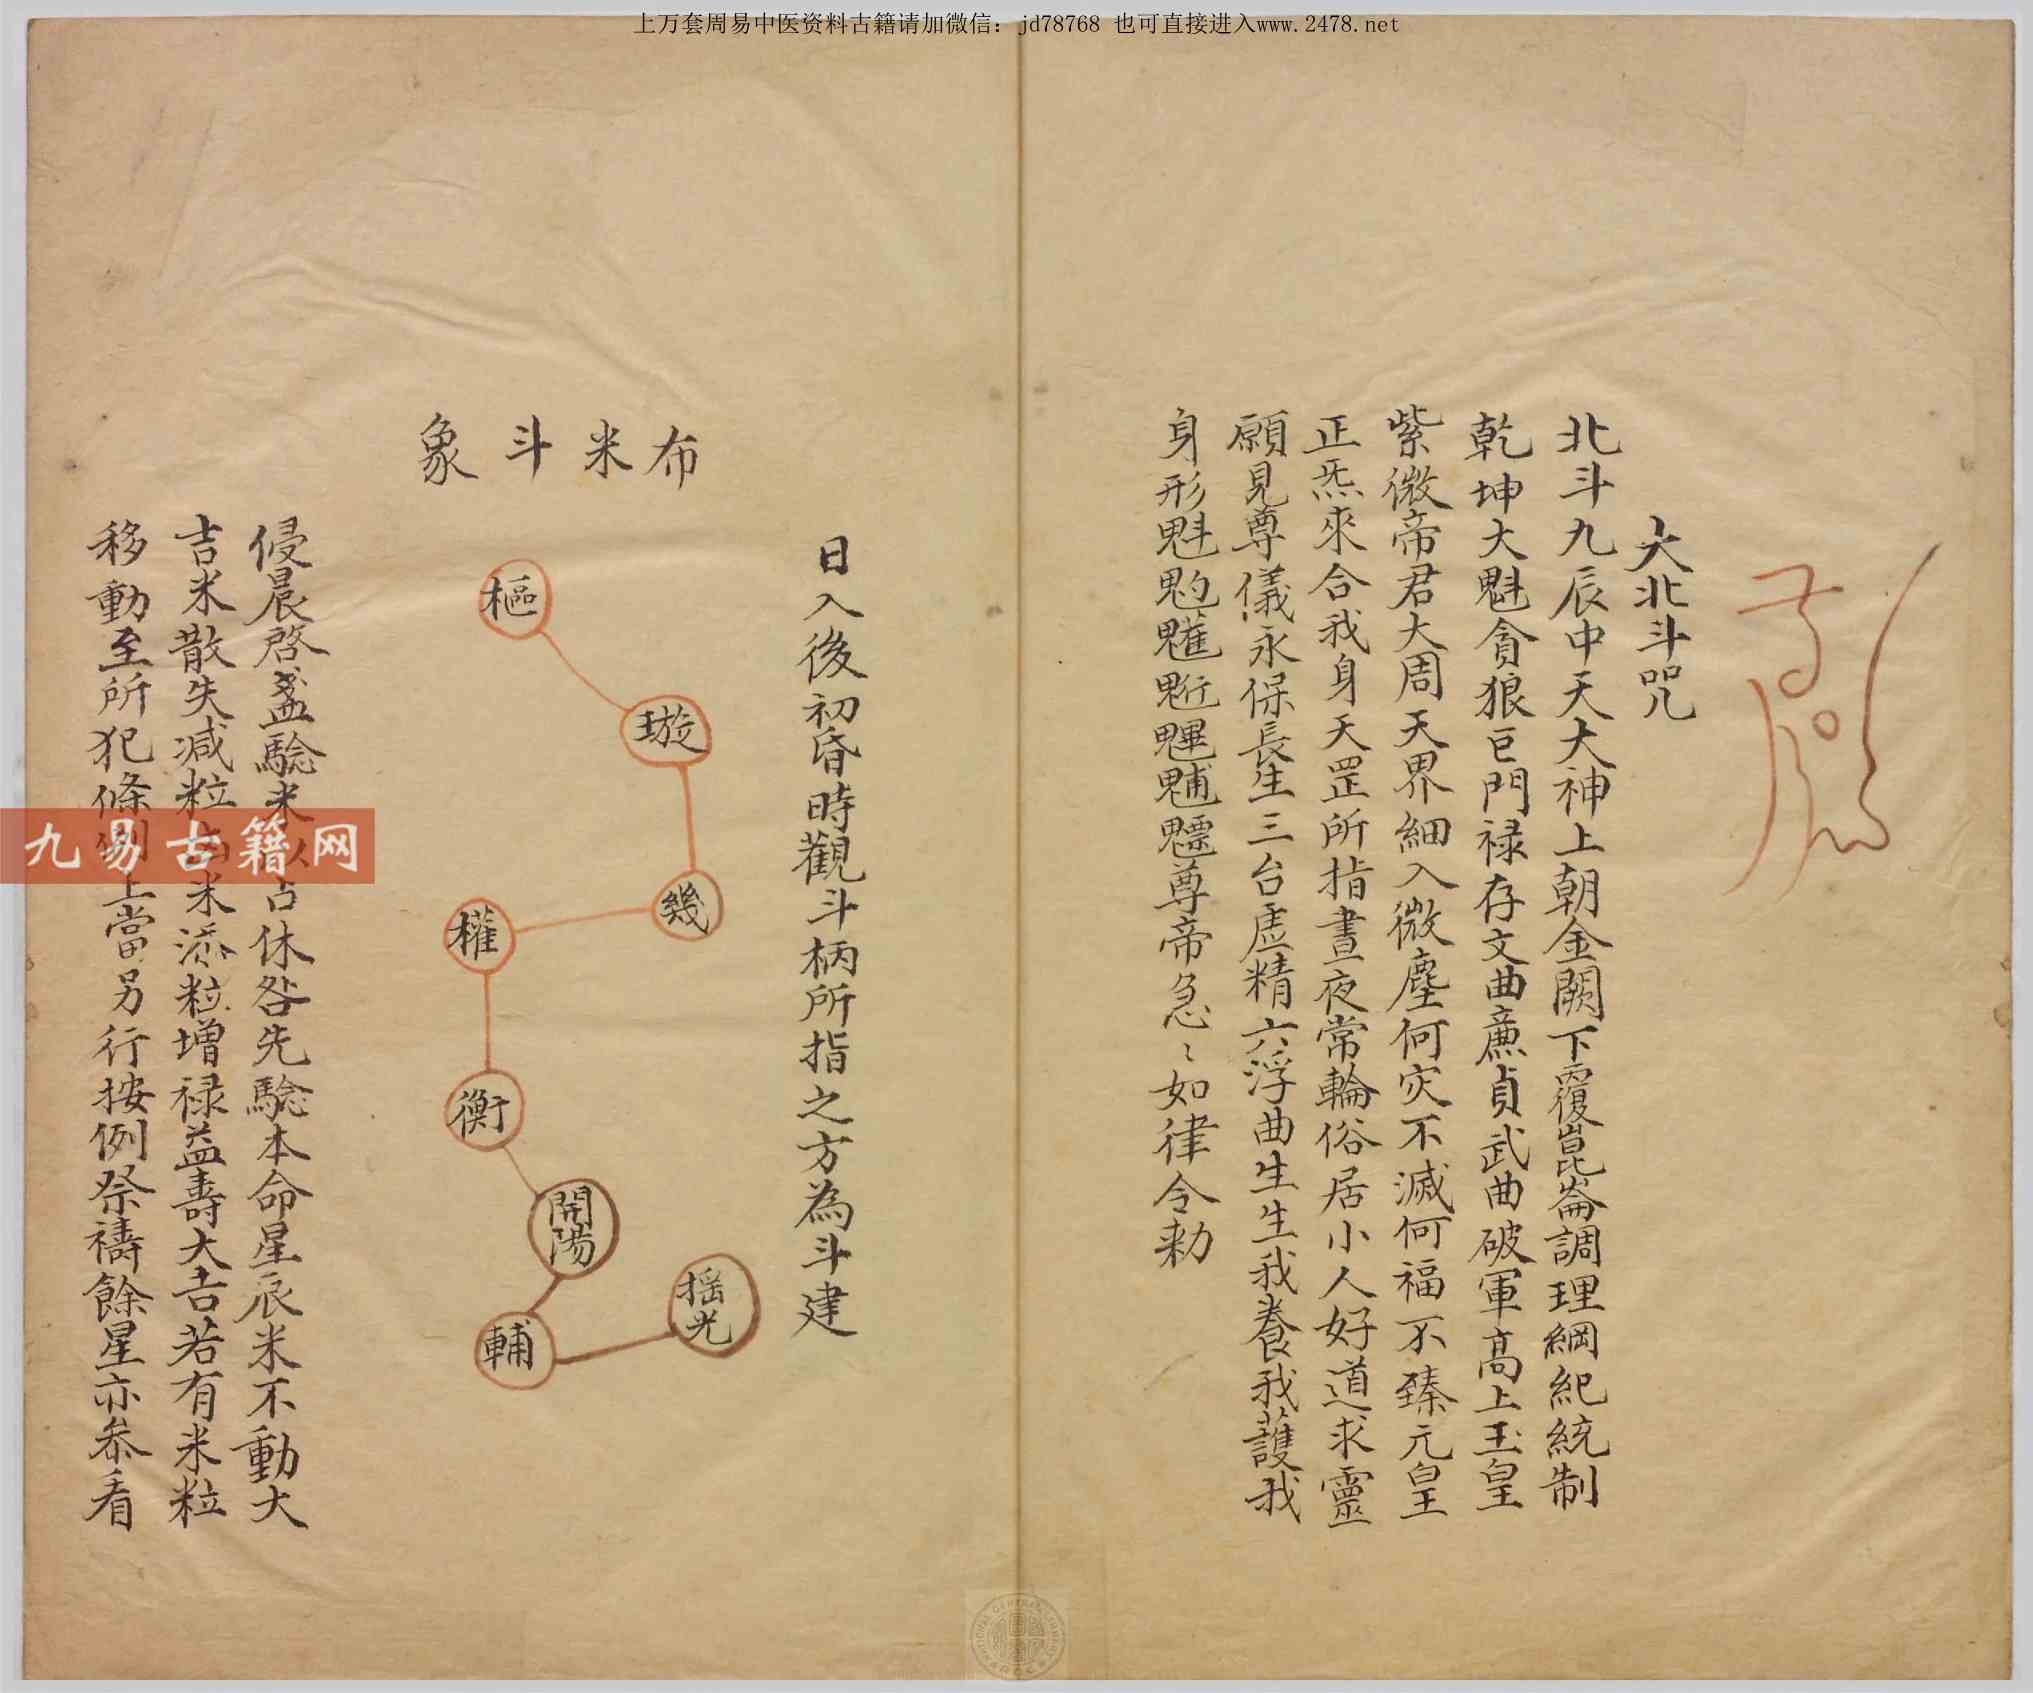 上万套周易中医资料古籍请加微信：jd78768 也可直接进入www.2478.net
大北斗咒
北斗九辰中天大神上朝金闕下覆崑崙調理綱紀統制
乾坤大魁貪狼巨門禄存文曲廉貞武曲破軍高上玉皇
紫微帝君大周天界細入微塵何灾不滅何福不臻元皇
正炁來合我身天罡所指晝夜常輪俗居小人好道求靈
願見尊儀永保長生三台虛精六浮曲生生我養我護我
身形魁䰢魋䰣魓䰠魒尊帝急〻如律令勅
日入後初昏時觀斗柄所指之方為斗建
布米斗象
樞
璇
幾
權
衡
開陽
輔
揺光
侵晨啓盏驗米以占休咎先驗本命星辰米不動大
吉米散失减粒米添粒增禄益壽大吉若有米粒
移動至所犯條例上當另行按例祭禱餘星亦叅看
九易古籍网